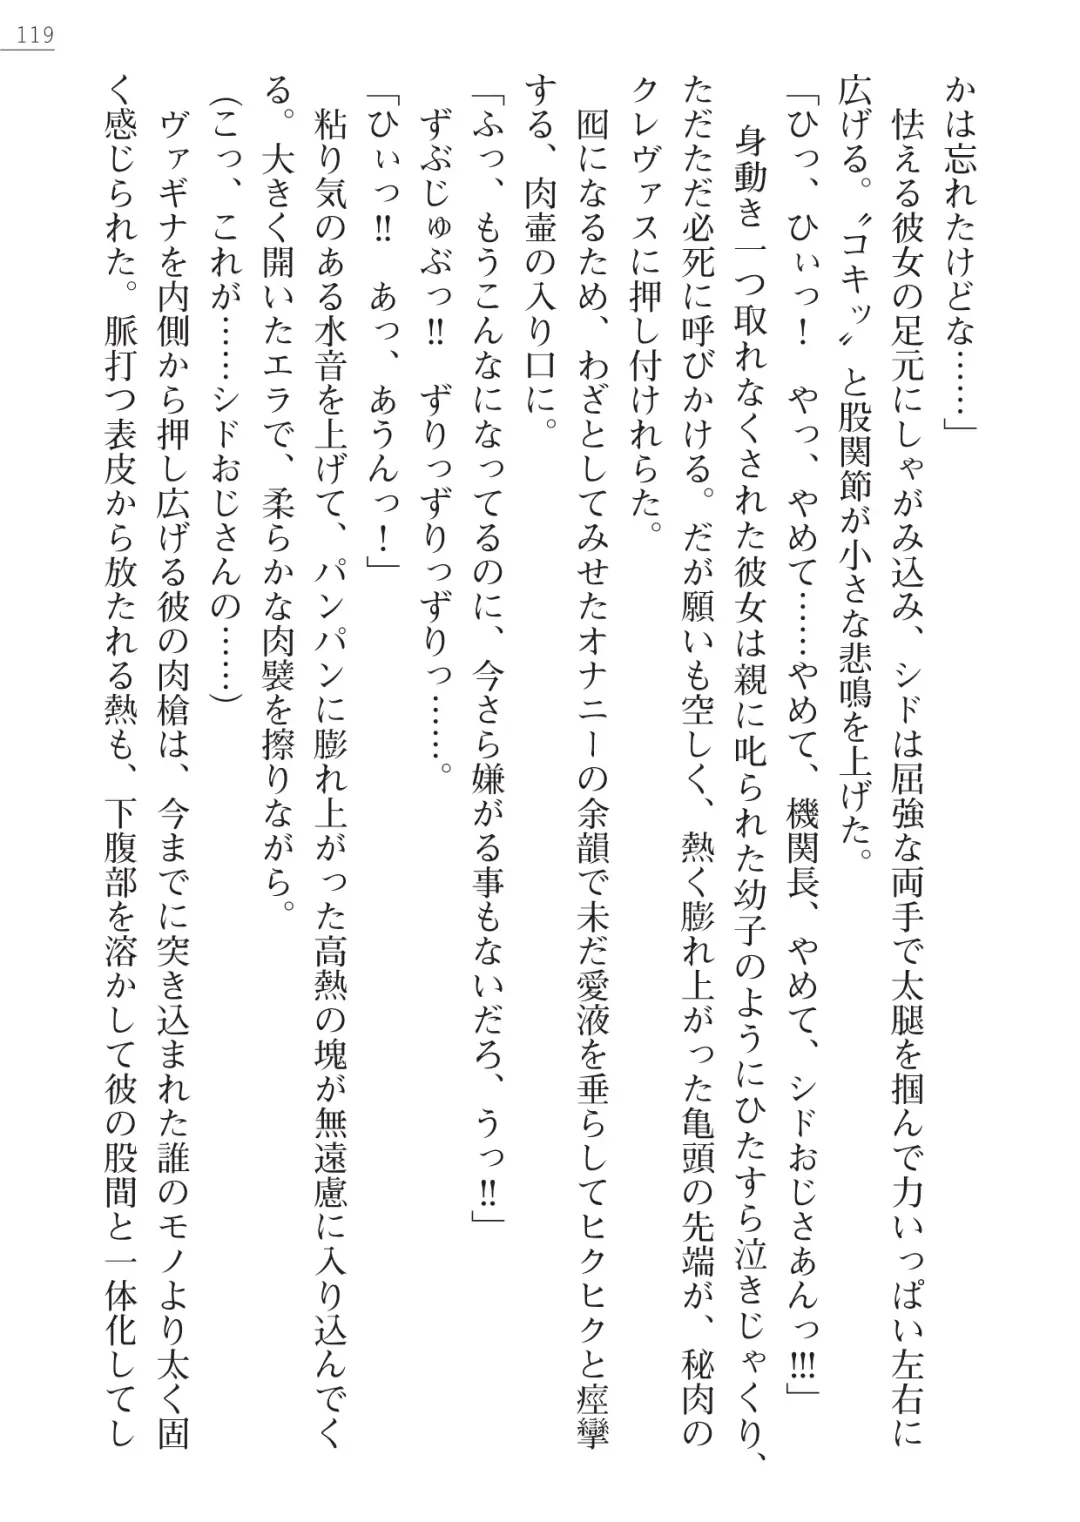 119
かは忘れたけどな……」
怯える彼女の足元にしゃがみ込み、シドは屈強な両手で太腿を掴んで力いっぱい左右に
広げる。〝コキッ〟と股関節が小さな悲鳴を上げた。
「ひっ、ひぃっ！　やっ、やめて……やめて、機関長、やめて、シドおじさあんっ!!!」
身動き一つ取れなくされた彼女は親に叱られた幼子のようにひたすら泣きじゃくり、
ただただ必死に呼びかける。だが願いも空しく、熱く膨れ上がった亀頭の先端が、秘肉の
クレヴァスに押し付けれらた。
囮になるため、わざとしてみせたオナニーの余韻で未だ愛液を垂らしてヒクヒクと痙攣
する、肉壷の入り口に。
「ふっ、もうこんなになってるのに、今さら嫌がる事もないだろ、うっ!!」
ずぶじゅぶっ!!　ずりっずりっずりっ……。
「ひぃっ!!　あっ、あうんっ！」
粘り気のある水音を上げて、パンパンに膨れ上がった高熱の塊が無遠慮に入り込んでく
る。大きく開いたエラで、柔らかな肉襞を擦りながら。
(こっ、これが……シドおじさんの……)
ヴァギナを内側から押し広げる彼の肉槍は、今までに突き込まれた誰のモノより太く固
く感じられた。脈打つ表皮から放たれる熱も、下腹部を溶かして彼の股間と一体化してし